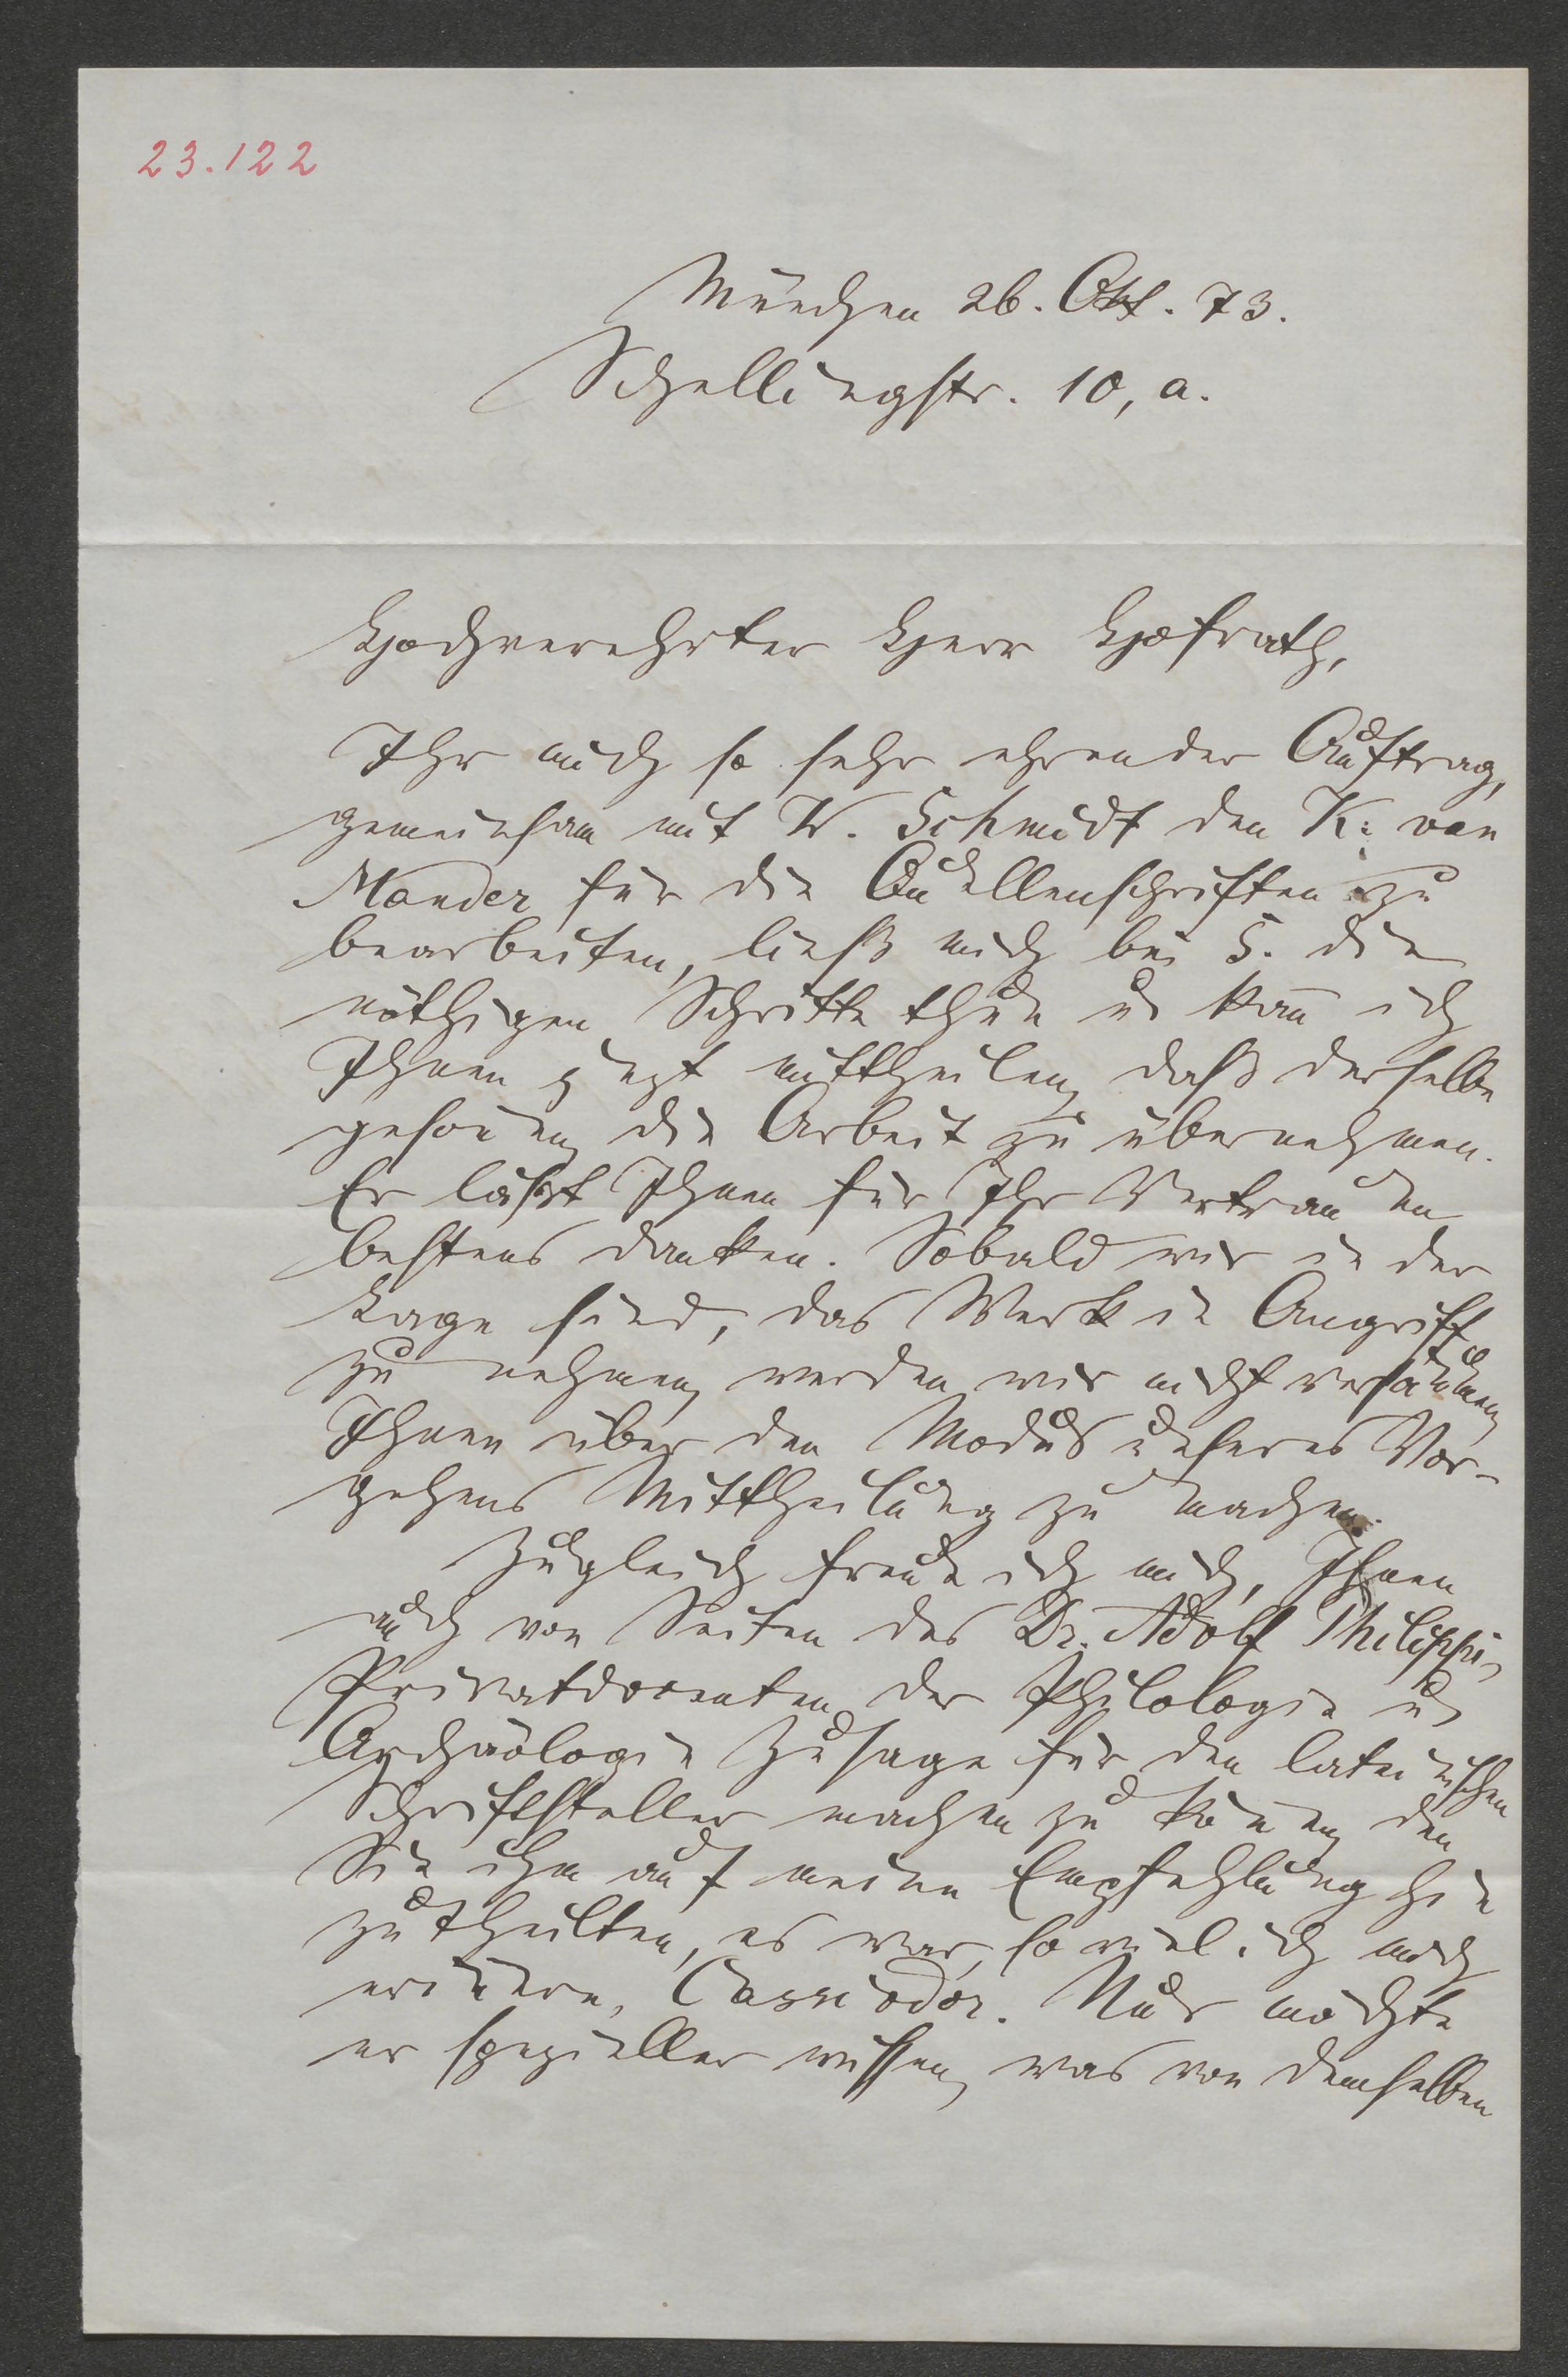 23.122
München 26. Okt. 73.
Schellingstr. 10, a.
Hochverehrter Herr Hofrath,
Ihr mich so sehr ehrender Auftrag,
gemeinsam mit W. Schmidt den K. van
Mander für die Quellenschriften zu
bearbeiten, ließ mich bei S. die
nöthigen Schritte thun u. kan̄ ich
Ihnen jezt mittheilen, daß derselbe
gesonnen, die Arbeit zu übernehmen.
Er läßt Ihnen für Ihr Vertrauen
bestens danken. Sobald wir in der
Lage sind, das Werk in Angriff
zu nehmen, werden wir nicht versäumen,
Ihnen über den Modus unseres Vor-
gehens Mittheilung zu machen.
Zugleich freue ich mich, Ihnen
auch von Seiten des Dr. Adolf Philippi,
Privatdocenten der Philologie u.
Archäologie Zusage für den lateinischen
Schriftsteller machen zu können, den
Sie ihm auf meine Empfehlung hin
zutheilten, es war, so viel ich mich
erinnere, Cassiodor. Nur möchte
er spezieller wissen, was von demselben